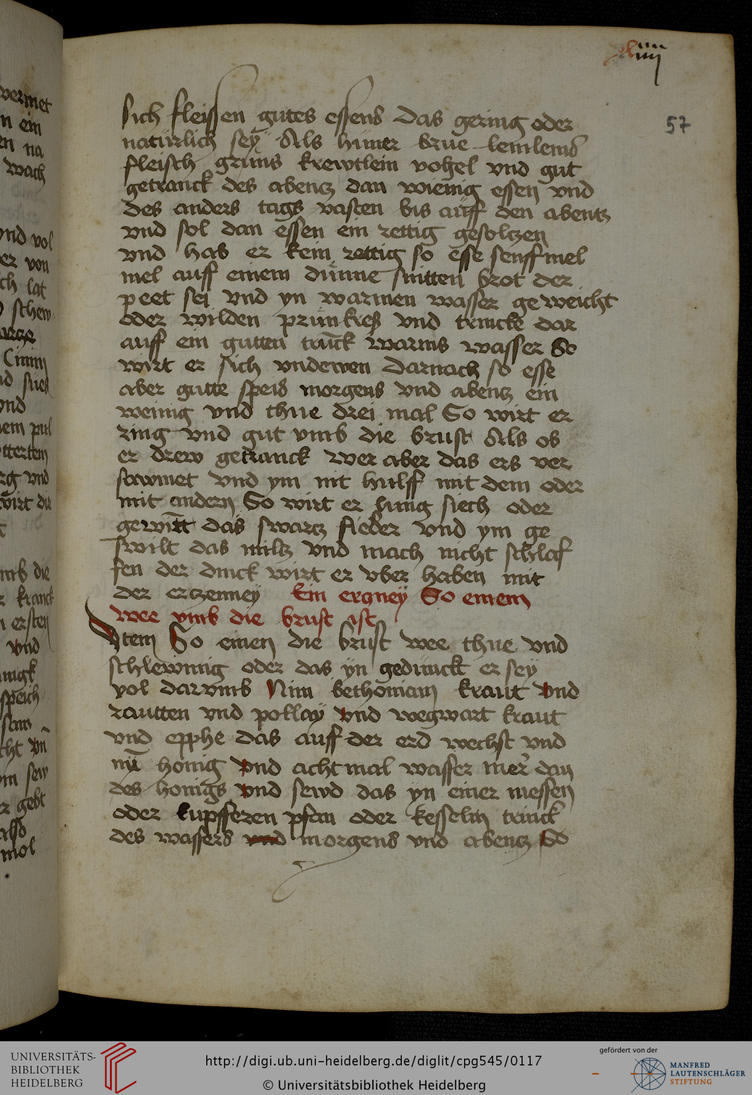 57
sich fleissen gutes essens das gering oder
natürlich sey Als hüner brue lemlens
fleisch grüns krewtlein vogel vnd gut
getranck des abentz dan wienig essen vnd
des anders tags vasten bis auff den abentz
vnd sol dan essen ein rettig gesoltzen
vnd hab er kein rettig so esse senffmel
mel auff einem dünne snitten brot der
peet sei vnd yn warmen wasser geweicht
oder wilden prünkreß vnd trincke dar
auff ein gutten trück warms wasser So
wirt er sich vndewen darnach so esse
aber gutte speis morgens vnd abentz ein
weinig vnd thue drei mal So wirt er
ring vnd gut vmb die brust Als ob
er drew getranck Wer aber das ers ver
sawmet vnd ym nit hulff mit dem oder
mit andern So wirt er siech oder
gewint das swartz fieber vnd ym ge
swilt das miltz vnd mach nicht schlaf
fen der druck wirt er vber haben mit
der ertzenney Ein ergney So einem
wee vmb die brust ist
Item So einen die brust wee thue vnd
schlewinig oder das yn gedunckt er sey
vol darvmb Nim bethoniam kraut vnd
rautten vnd pollay vnd wegwart kraut
vnd epphe das auff der erd wechst vnd
nü honig vnd acht mal wasser mer dan
des honigs vnd sewd das yn einer messen
oder kupfferen pfan oder kesselin trinck
des wassers vnd morgens vnd abentz So
vnd vol
er von
ch lat
vnd
UNIVERSITÄTS-
BIBLIOTHEK
HEIDELBERG
http://digi.ub.uni-heidelberg.de/diglit/cpg545/0117
© Universitätsbibliothek Heidelberg
gefördert von der
MANFRED
LAUTENSCHLÄGER
STIFTUNG